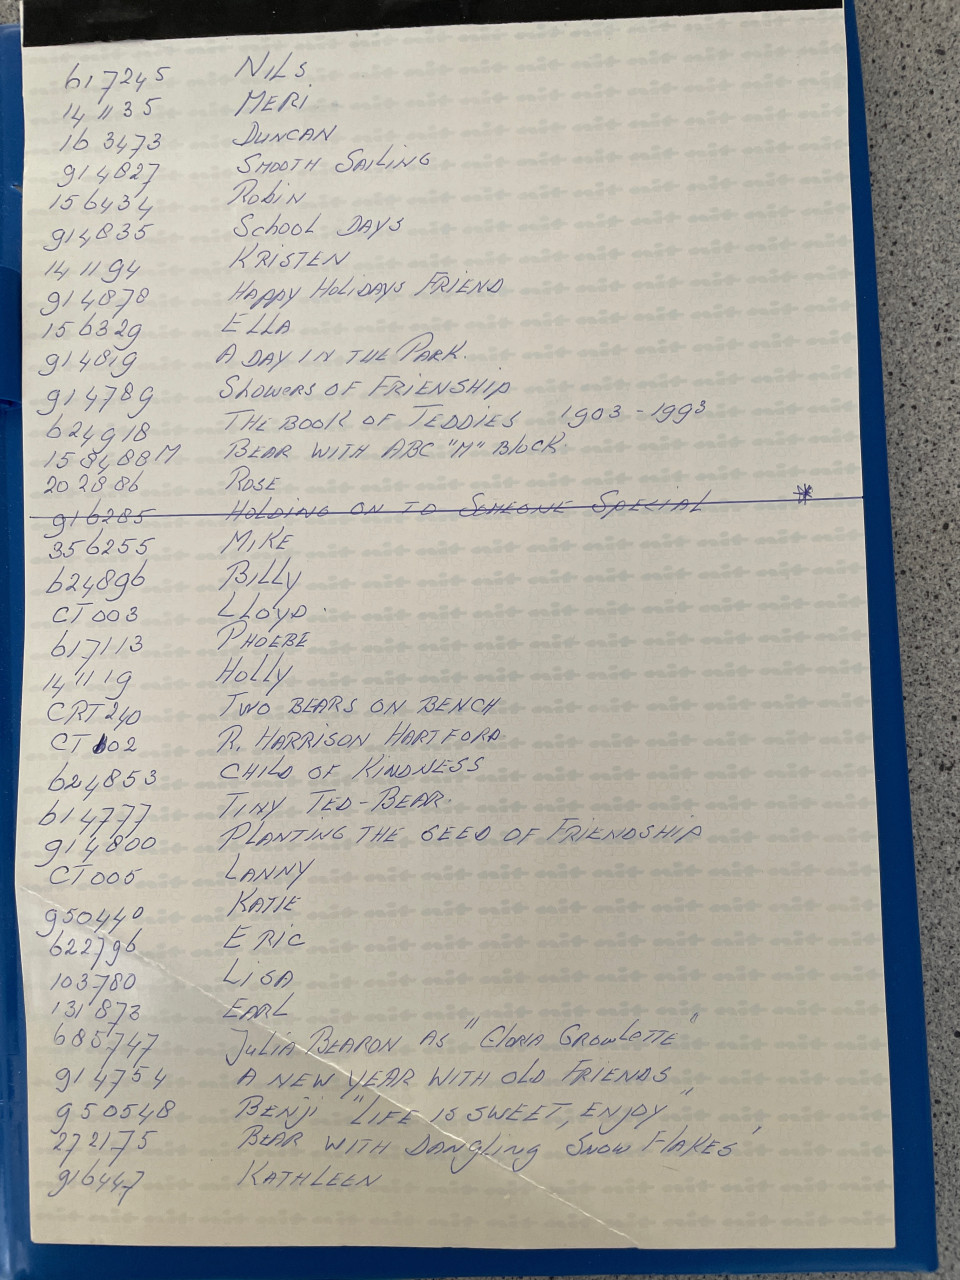 617245 NILS
141135 MERI
163473 DUNCAN
914827 SMOOTH SAILING
156434 ROBIN
914835 SCHOOL DAYS
141194 KRISTEN
914878 HAPPY HOLIDAYS FRIEND
156329 ELLA
914819 A DAY IN THE PARK.
914789 SHOWERS OF FRIENSHIP
624918 THE BOOK OF TEDDIES 1903-1993
158488M BEAR WITH ABC "M" BLOCK
202886 ROSE
916285 HOLDING ON TO SOMEONE SPECIAL *
356255 MIKE
624896 BILLY
CT003 LLOYD.
617113 PHOEBE
141119 HOLLY
CRT240 TWO BEARS ON BENCH
CT002 R. HARRISON HARTFORD
624853 CHILD OF KINDNESS
614777 TINY TED-BEAR
914800 PLANTING THE SEED OF FRIENDSHIP
CT005 LANNY
950440 KATIE
622796 ERIC
103780 LISA
131873 EARL
685747 JULIA BEARON AS "GLORIA GROWLOTTE"
914754 A NEW YEAR WITH OLD FRIENDS
950548 BENJI "LIFE IS SWEET, ENJOY"
272175 BEAR WITH DANGLING SNOW FLAKES
916447 KATHLEEN